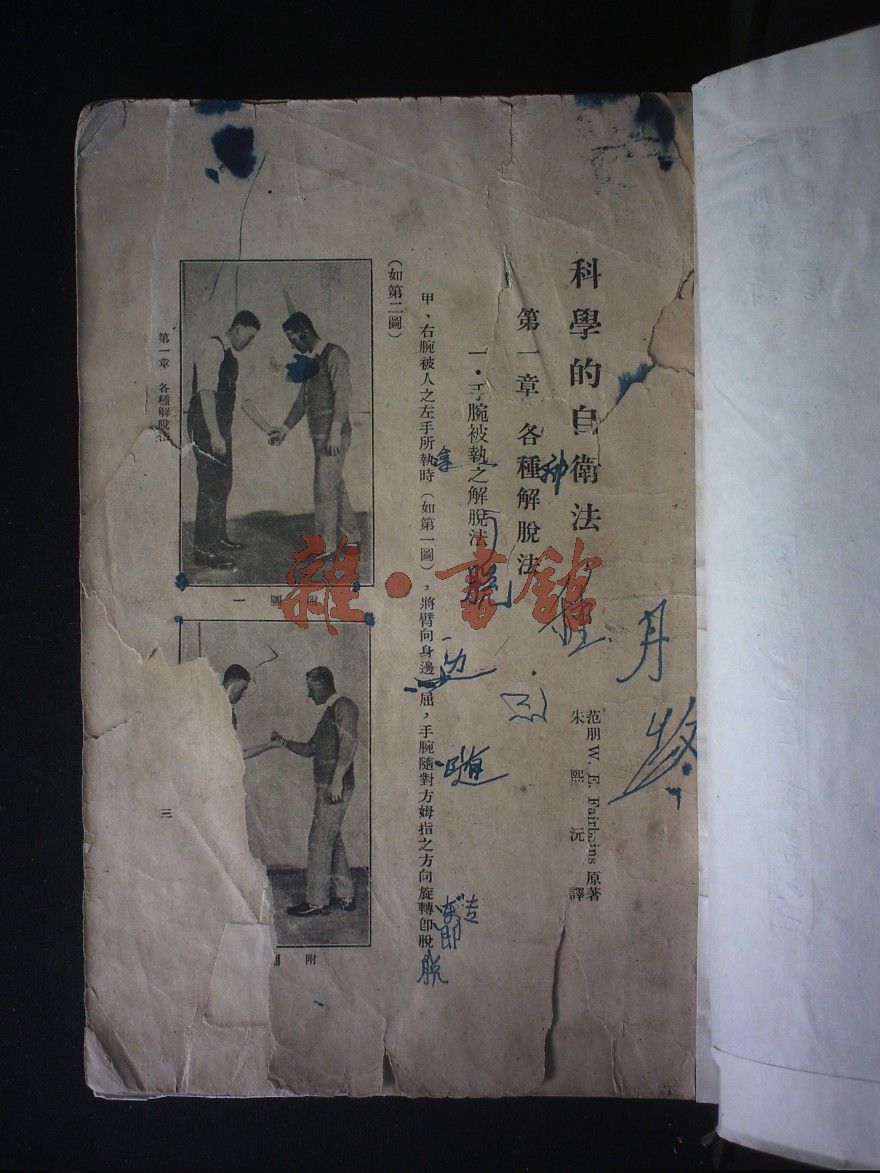 科學的自衛法
范朋W. E. Fairbains 原著
朱熙沅 譯
第一章 各種解脫法
一・手腕被執之解脫法
甲、右腕被人之左手所執時(如第一圖),將臂向身邊一屈,手腕隨對方姆指之方向旋轉卽脫
(如第二圖)
附圖一
附圖
第一章 各種解脫法
三
雜・書館
月
拿
脫
边
随
法
即
脱